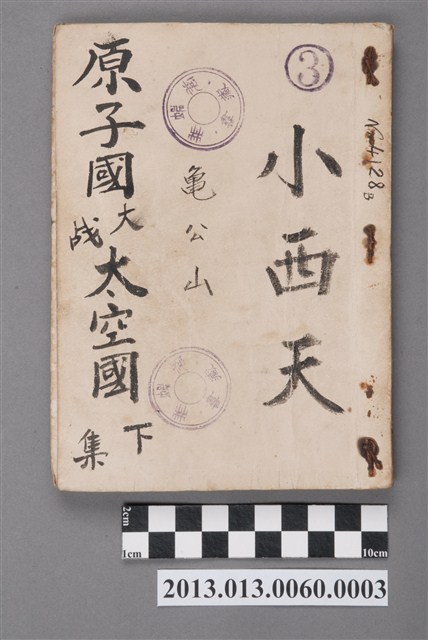 ③
小西天
亀公山
原子國
大战
太空國
下集
N64128B
2cm
1cm
10cm
2013.013.0060.0003